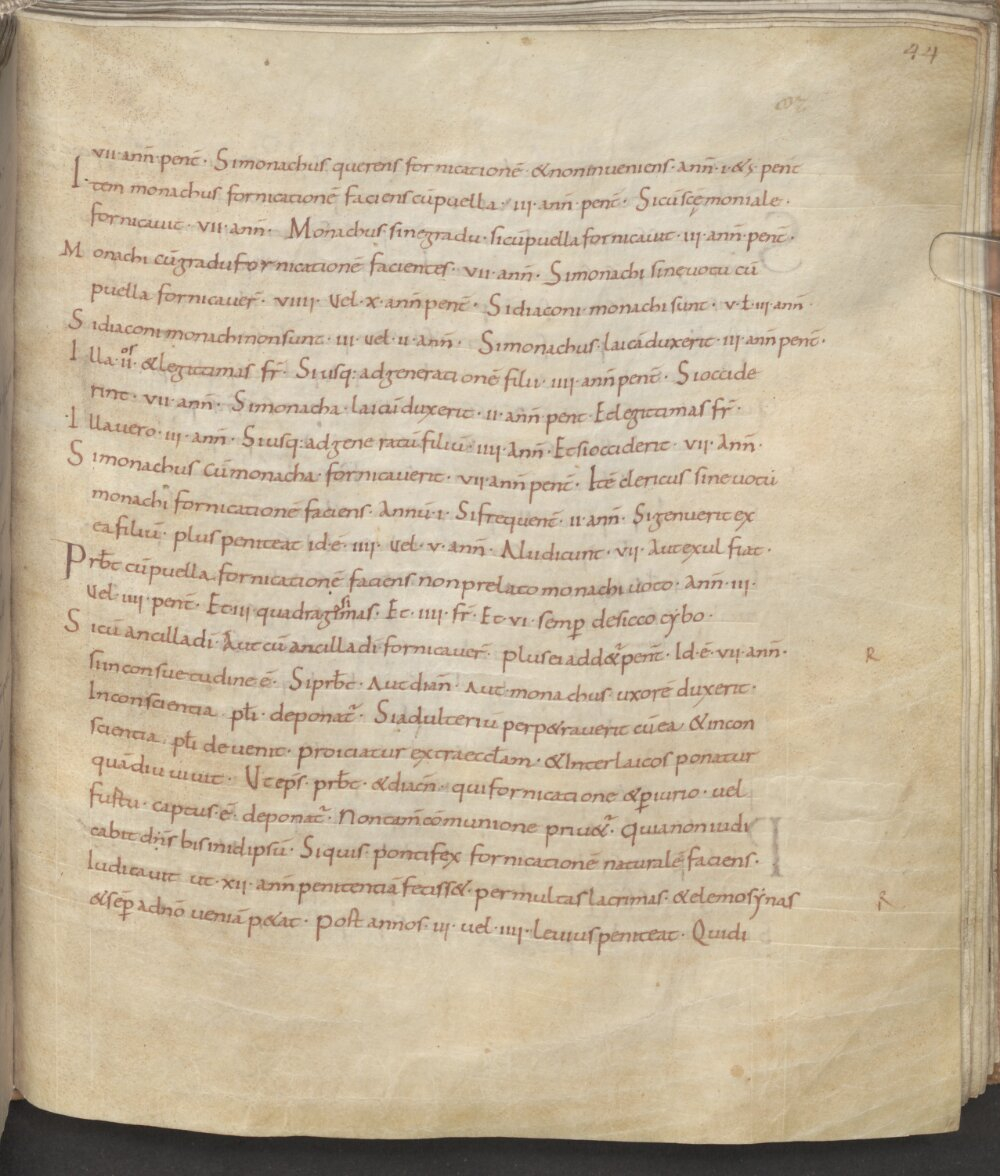 44
vii· ann̄· penit̄· Simonachus querens fornicationē· &noninueniens· ann̄· i· &s̄· penit̄
Item monachus fornicationē faciens cū puella· iii· ann̄· penit̄· Sicū scē moniale·
fornicauit· vii· ann̄· Monachus sinegradu· sicū puella fornicauit· iii· ann̄· penit̄·
Monachi cū gradu fornicationē facientes· vii· ann̄· Simonachi sineuotu cū
puella fornicauer̄· viiii· Vel· x· ann̄ penit̄· Sidiaconi monachi sunt· v· ł· iii· ann̄·
Sidiaconi monachi non sunt· iii· vel· ii· ann̄· Simonachus laicā duxerit· iii· ann̄ penit̄·
Illa· ii·os &legittimas fr̄· Siusq: ad generationē filii· iiii· ann̄ penit̄· Sioccide
rint· vii· ann̄· Simonacha· laicū duxerit· ii· ann̄ penit̄ Et legittimas fr̄·
Illa uero· iii· ann̄· Siusq: ad gene ratū filiū· iiii· Ann̄· Et si occiderit· vii· Ann̄·
Simonachus cū monacha· fornicauerit· vii· ann̄ penit̄· Itē clericus sine uotū
monachi fornicationē faciens· Annū· i· Sifrequent̄· ii· ann̄· Sigenuerit ex
ea filiū· plus peniteat id· ē· iiii· vel· v· ann̄· Aludicunt· vii· Aut exul fiat·
Prb̄t cū puella· fornicationē faciens non prelato monachi uoto· Ann̄· iii·
Vel· iiii· penit̄· Et iii· quadragisimas· Et· iiii· fr̄· Et· vi· semp̄ desicco cybo·
Sicū ancilla dī· Aut cū ancilla dī fornicauer̄· plus ei add&r̄ penit̄· Id· ē· vii· ann̄· R
si in consuetudine ē· Siprb̄t· Aut diaň· Aut monachus· uxorē duxerit·
In conscientia pƚi· deponat̄r· Siadulteriū perp&rauerit cū ea &incon
scientia pƚi deuenit· proiciatur extra eccƚam· &Inter laicos ponatur
quādiu uiuit· Ut ep̄s· prb̄t· &diac̄n· qui fornicatione &p̄iurio· vel
furtu· captus· ē· deponat̄r· Non tam̄ cōmunione priu&r̄· Quia non iudi
cabit dn̄s bis in id ipsū· Si quis· pontifex fornicationē naturalē faciens·
Iudicauit ut· xii· ann̄ penitentiā feciss&· per multas lacrimas· &elemosÿnas R
&sēp̄ ad dn̄o ueniā p&at· Post annos· iii· vel· iiii· leuius peniteat· Quidi